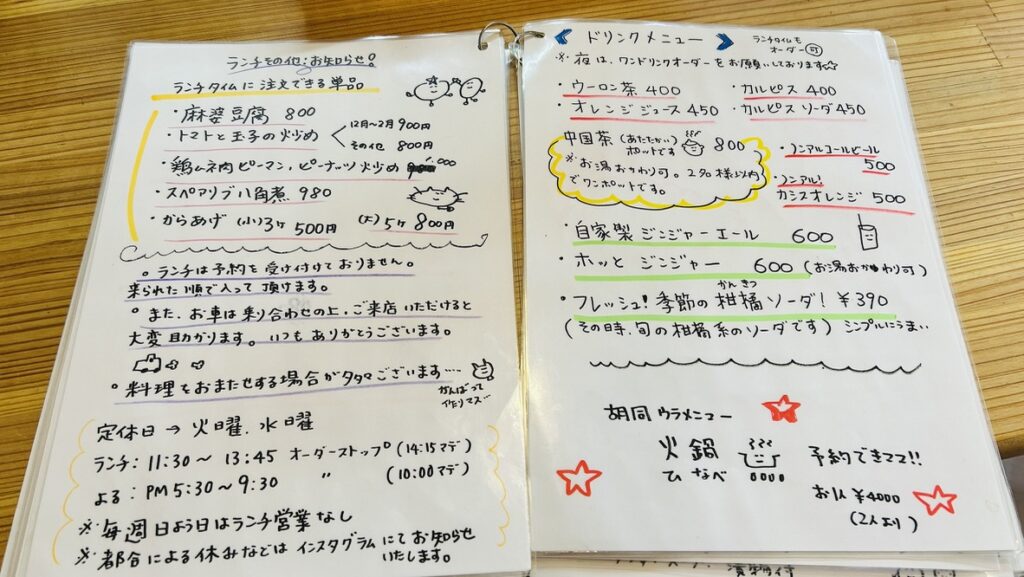 ランチその他:お知らせ!
ランチタイムに注文できる単品。
・麻婆豆腐 800
・トマトと玉子の炒め 12月~2月 900円
その他 800円
・鶏ムネ肉ピーマン,ピーナッツ炒め
・スペアリブ八角煮 980
・からあげ (小)3ヶ 500円 (大)5ヶ 800円
。ランチは予約を受け付けておりません。
来られた順で入って頂けます。
。また、お車は乗り合わせの上、ご来店いただけると
大変助かります。いつもありがとうございます。
。料理をおまたせする場合が多々ございます…
がんばって
作りマス
定休日→火曜、水曜日
ランチ:11:30~13:45 オーダーストップ(14:15マデ)
よる:PM5:30~9:30 〃 (10:00マデ)
※毎週日よう日はランチ営業なし
※都合による休みなどはインスタグラムにてお知らせ
いたします。
《 ドリンクメニュー 》 ランチタイムも
オーダー可
※夜は、ワンドリンクオーダーをお願いしております☆
・ウーロン茶 400 ・カルピス 400
・オレンジジュース 450 ・カルピスソーダ 450
中国茶 (あたたかい)ポットです 800
※お湯おかわり可。2名様以内
でワンポットです。
・ノンアルコールビール
500
・ノンアル!
カシスオレンジ 500
・自家製ジンジャーエール 600
・ホッとジンジャー 600 (お湯おかわり可)
・フレッシュ!季節の柑橘ソーダ! ¥390
かんきつ
(その時、旬の柑橘系のソーダです) シンプルにうまい
胡同ウラメニュー
火鍋 予約できマス!!
ひなべ
お1人 ¥4000
(2人より)